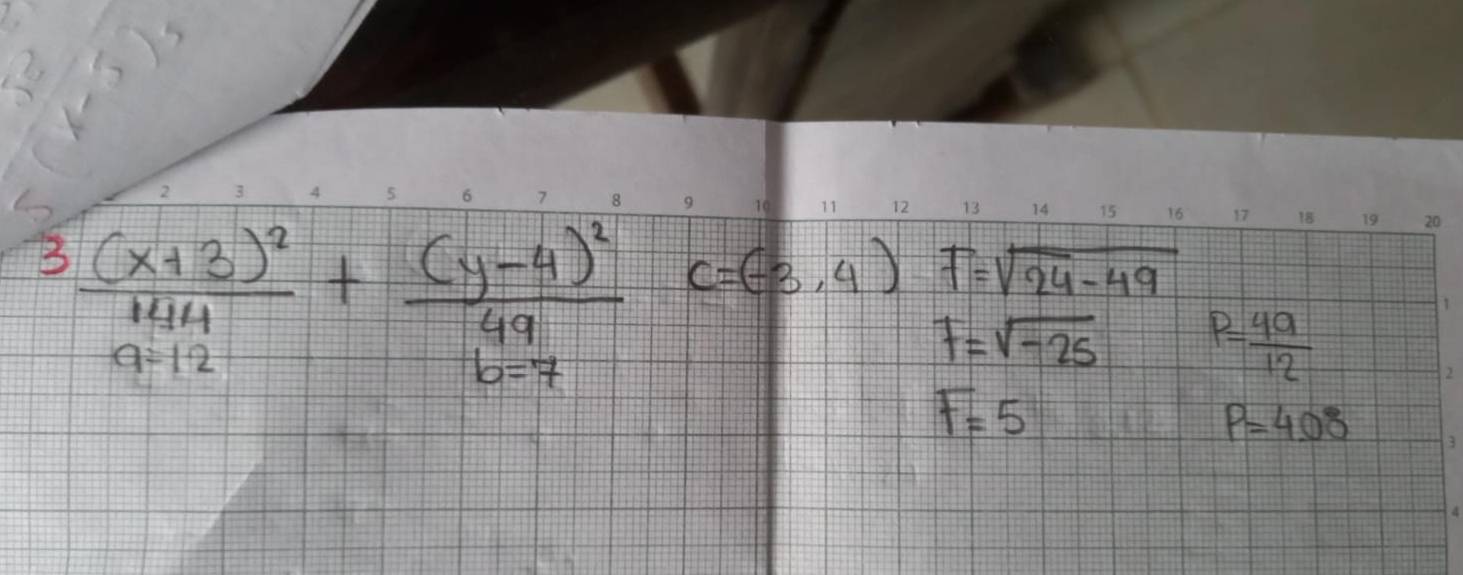 2 3 4 5 6 7 8 9 10 11 12 13 14 15 16 17 18 19 20
3 (x+3)² / 144 + (y-4)² / 49 C=(-3,4) F=√24-49
a=12 b=7 F=√-25 P=49/12
F=5 P=4.08
1
2
3
4